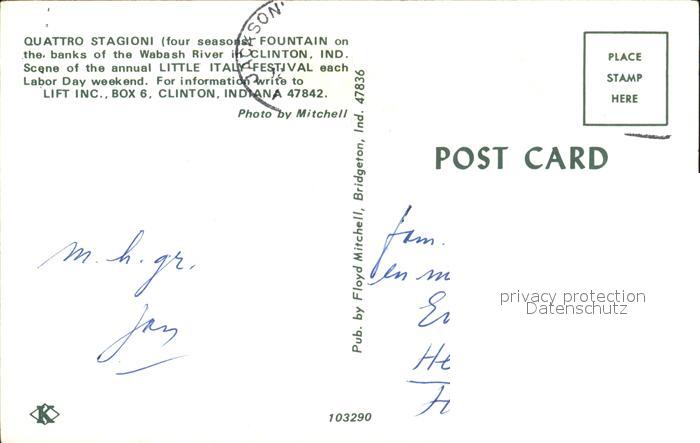 QUATTRO STAGIONI (four seasons) FOUNTAIN on
the banks of the Wabash River in CLINTON, IND.
Scene of the annual LITTLE ITALY FESTIVAL each
Labor Day weekend. For information write to
LIFT INC., BOX 6, CLINTON, INDIANA 47842.
Photo by Mitchell
JACKSON
Pub. by Floyd Mitchell, Bridgeton, Ind. 47836
PLACE
STAMP
HERE
POST CARD
m. h. gr.
Jan
fam.
en m
He
privacy protection
Datenschutz
K
103290